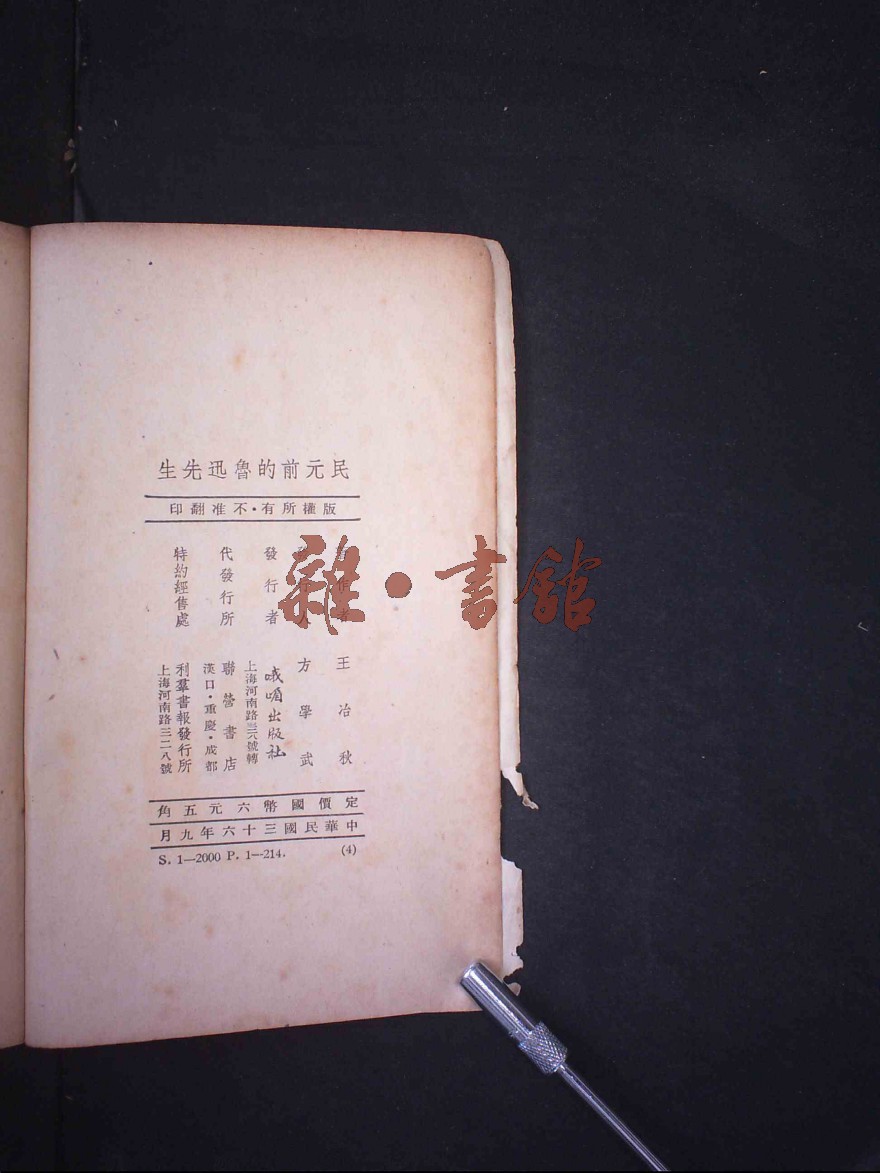 民元前的魯迅先生
版權所有·不准翻印
作者 王冶秋
方學武
發行者 峨嵋出版社
上海河南路三二八號轉
代發行所 聯營書店
漢口·重慶·成都
特約經售處 利羣書報發行所
上海河南路三二八號
定價國幣六元五角
中華民國三十六年九月
S. 1—2000 P. 1—214. (4)
雜·書館